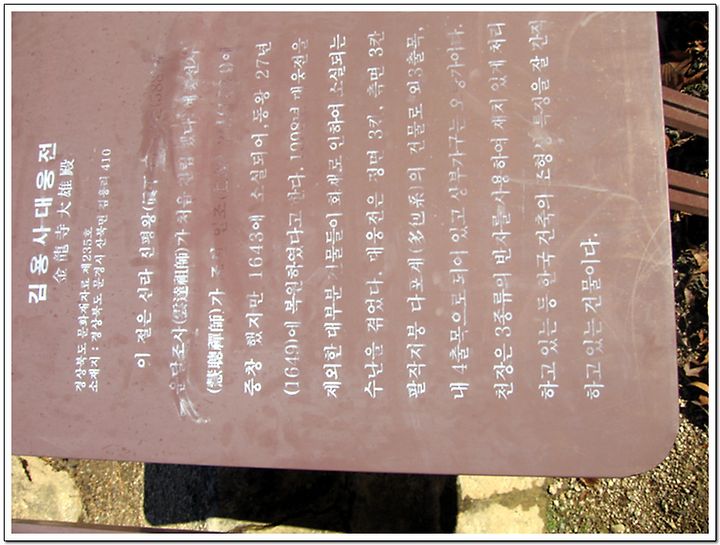 김용사대웅전
金龍寺大雄殿
경상북도 문화재자료 제235호
소재지 : 경상북도 문경시 산북면 김용리 410
이 절은 신라 진평왕
운달조사(雲達祖師)가 처음
(慧聰禪師)가
중창 했지만 1643에 소실되어, 동왕 27년
(1649)에 복원하였다고 한다. 대웃전을
제외한 대부분 건물들이 화재로 인하여 소실되는
수난을 겪었다. 대웅전은 정면 3칸, 측면 3칸
팔작지붕 다포계(多包系)의 건물로 외3출목,
내 4출목으로 되어 있고 상부가구는 오량가이다.
천장은 3종류의 반자를 사용하여 재치 있게 처리
하고 있는 등 한국 건축의 조형상 특징을 잘 간직
하고 있는 건물이다.